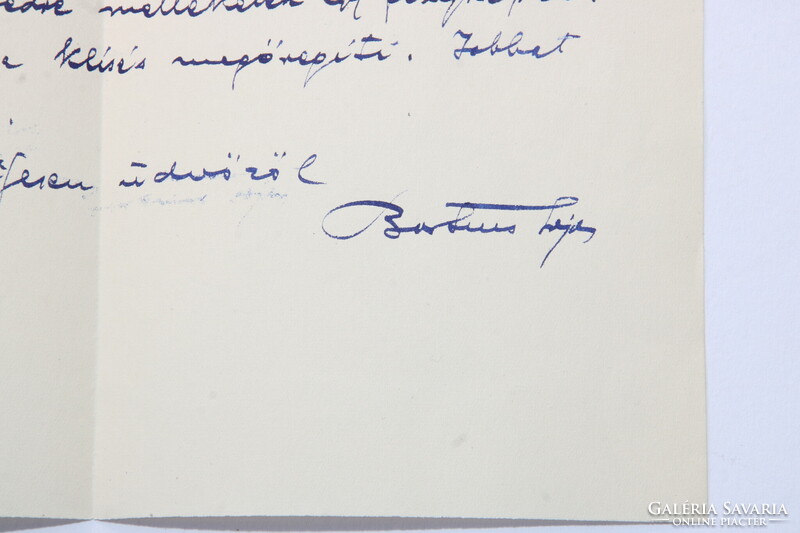 mellékelek egy
a klisés megőregíti. Jobbat
üdvözöl
Bartus Lajos
GALÉRIA SAVARIA
ONLINE PIACTÉR